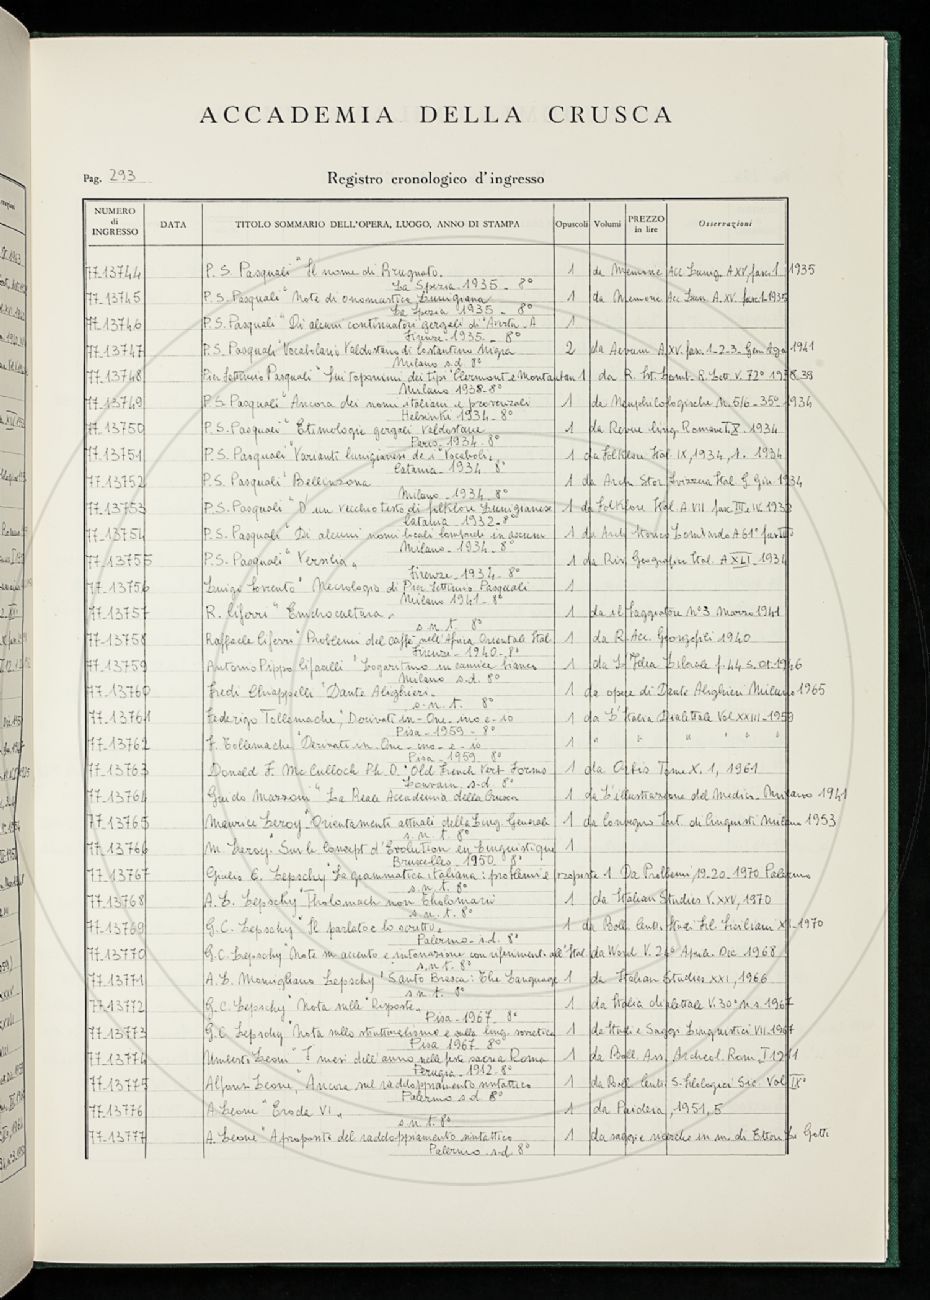 ACCADEMIA DELLA CRUSCA
Pag. 293
Registro cronologico d'ingresso
NUMERO di INGRESSO DATA TITOLO SOMMARIO DELL'OPERA, LUOGO, ANNO DI STAMPA Opuscoli Volumi PREZZO in lire Osservazioni
77-13744 P. S. Pasquali "Il nome di Brugnato. 1 da Memorie Acc. Lunig. A XV, fasc. 1 1935
La Spezia 1935 - 8°
77-13745 P. S. Pasquali "Note di onomastica Lunigiana 1 da Memorie Ac. Lun. A. XV. fasc. 1-1935
La Spezia 1935 - 8°
77-13746 P. S. Pasquali "Di alcuni continuatori gergali di 1
Firenze 1935 - 8°
77-13747 P. S. Pasquali "Vocabolario Valdostano di Costantino Nigra 2 da Aevum A. XV. fasc. 1-2-3- 1941
Milano s.d. 8°
77-13748 Pier Settimio Pasquali "Sui toponimi dei tipi "Clermont e Montauban 1 da R. Ist. Lomb. V. 72° 1938-39
Milano 1938-8°
77-13749 P. S. Pasquali "Ancora dei nomi italiani e provenzali 1 da Neuphilologische N. 5/6 - 35° - 1934
Helsinki 1934 - 8°
77-13750 P. S. Pasquali "Etimologie gergali Valdostane 1 da Revue ling. Romane X - 1934
Paris 1934 - 8°
77-13751 P. S. Pasquali "Varianti lunigianesi de i "Vocaboli" 1 da Folklore Ital. IX, 1934, 1934
Catania - 1934 - 8°
77-13752 P. S. Pasquali "Bellinzona 1 da Arch. Stor. Svizzera Ital. 1934
Milano - 1934 - 8°
77-13753 P. S. Pasquali "D'un vecchio testo di folklore Lunigianese 1 da Folklore Ital. A. VII fasc. III e IV. 1932
Catania 1932 - 8°
77-13754 P. S. Pasquali "Di alcuni nomi locali lombardi in 1 da Arch. Storico Lombardo A 61°
Milano - 1934 - 8°
77-13755 P. S. Pasquali "Versilia" 1 da Riv. Geografica Ital. A XLI - 1934
Firenze - 1934 - 8°
77-13756 Luigi Sorrento "Necrologio di Pier Settimio Pasquali 1
Milano 1941 - 8°
77-13757 R. Ciferri "Emerocultura" 1 da il Viaggiatore N° 3 Marzo 1941
s. n. t. 8°
77-13758 Raffaele Ciferri "Problemi del caffè nell'Africa Orientale Ital. 1 da R. Acc. Georgofili 1940
Firenze - 1940 - 8°
77-13759 Antonio Pippo "Logaritmo in camice bianco 1 da
Milano s.d. 8°
77-13760 Fredi Chiappelli "Dante Alighieri" 1 da opere di Dante Alighieri Milano 1965
s. n. t. 8°
77-13761 Federigo Tollemache "Derivati in -One -ino e -io 1 da L'Italia Dialettale Vol. XXIII - 1959
Pisa - 1959 - 8°
77-13762 F. Tollemache "Derivati in -One -ino - e - io 1 " " " " "
Pisa - 1959 - 8°
77-13763 Donald F. McCulloch Ph. D. "Old French Vert Forms 1 da Orbis Tome X, 1, 1961
Louvain s.d. 8°
77-13764 Guido Mazzoni "La Reale Accademia della Crusca 1 da L'illustrazione del Medico - Milano 1941
77-13765 Maurice Leroy "Orientamenti attuali della Ling. Generale 1 da Convegno Int. di Linguisti Milano 1953
s. n. t. 8°
77-13766 M. Leroy. Sur le Concept d'Evolution en Linguistique 1
Bruxelles - 1950 8°
77-13767 Giulio C. Lepschy "La grammatica italiana: problemi e risposte 1 Da Problemi, 19-20 1970 Palermo
s. n. t. 8°
77-13768 A. L. Lepschy "Tholomach non Tholomario 1 da Italian Studies V. XXV, 1970
s. n. t. 8°
77-13769 G. C. Lepschy "Il parlato e lo scritto" 1 da Boll. Centro Studi Fil. Siciliani XI - 1970
Palermo - s.d. 8°
77-13770 G. C. Lepschy "Note su accento e intonazione con riferimento all'Ital. da Word V. 24° Apr. Dic. 1968
s. n. t. 8°
77-13771 A. L. Momigliano Lepschy "Santo Brasca: The Language 1 da Italian Studies XXI, 1966
s. n. t. 8°
77-13772 G. C. Lepschy "Nota sulle Risposte" 1 da Italia dialettale V. 30° n.s. 1967
Pisa - 1967 - 8°
77-13773 G. C. Lepschy "Nota sullo strutturalismo e sulla ling. sovietica 1 da Studi e Saggi Linguistici VII-1967
Pisa 1967 - 8°
77-13774 Umberto Leoni "I mesi dell'anno nelle feste sacre Roma 1 da Boll. Ass. Archeol. Rom. I 1911
Perugia - 1912 - 8°
77-13775 Alfonso Leone "Ancora sul raddoppiamento sintattico 1 da Boll. Centro S. Filologici Sic. Vol. IX°
Palermo s.d. 8°
77-13776 A. Leone "Eroda VI" 1 da Paideia, 1951, 5
s. n. t. 8°
77-13777 A. Leone "A proposito del raddoppiamento sintattico 1 da saggi e ricerche in m. di Ettore Li Gotti
Palermo - s.d. 8°